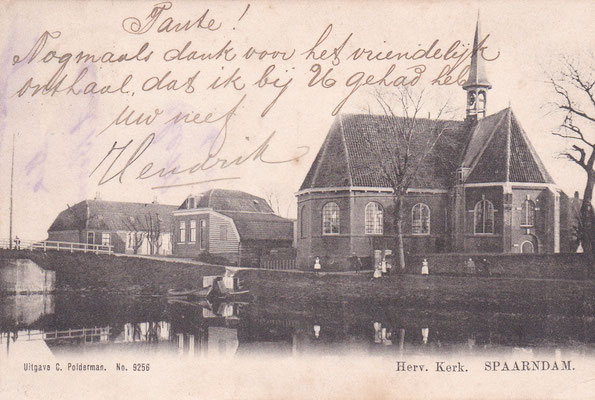 Tante!
Nogmaals dank voor het vriendelijk
onthaal, dat ik bij U gehad heb
Uw neef
Hendrik
Uitgave C. Polderman. No. 9256
Herv. Kerk. SPAARNDAM.